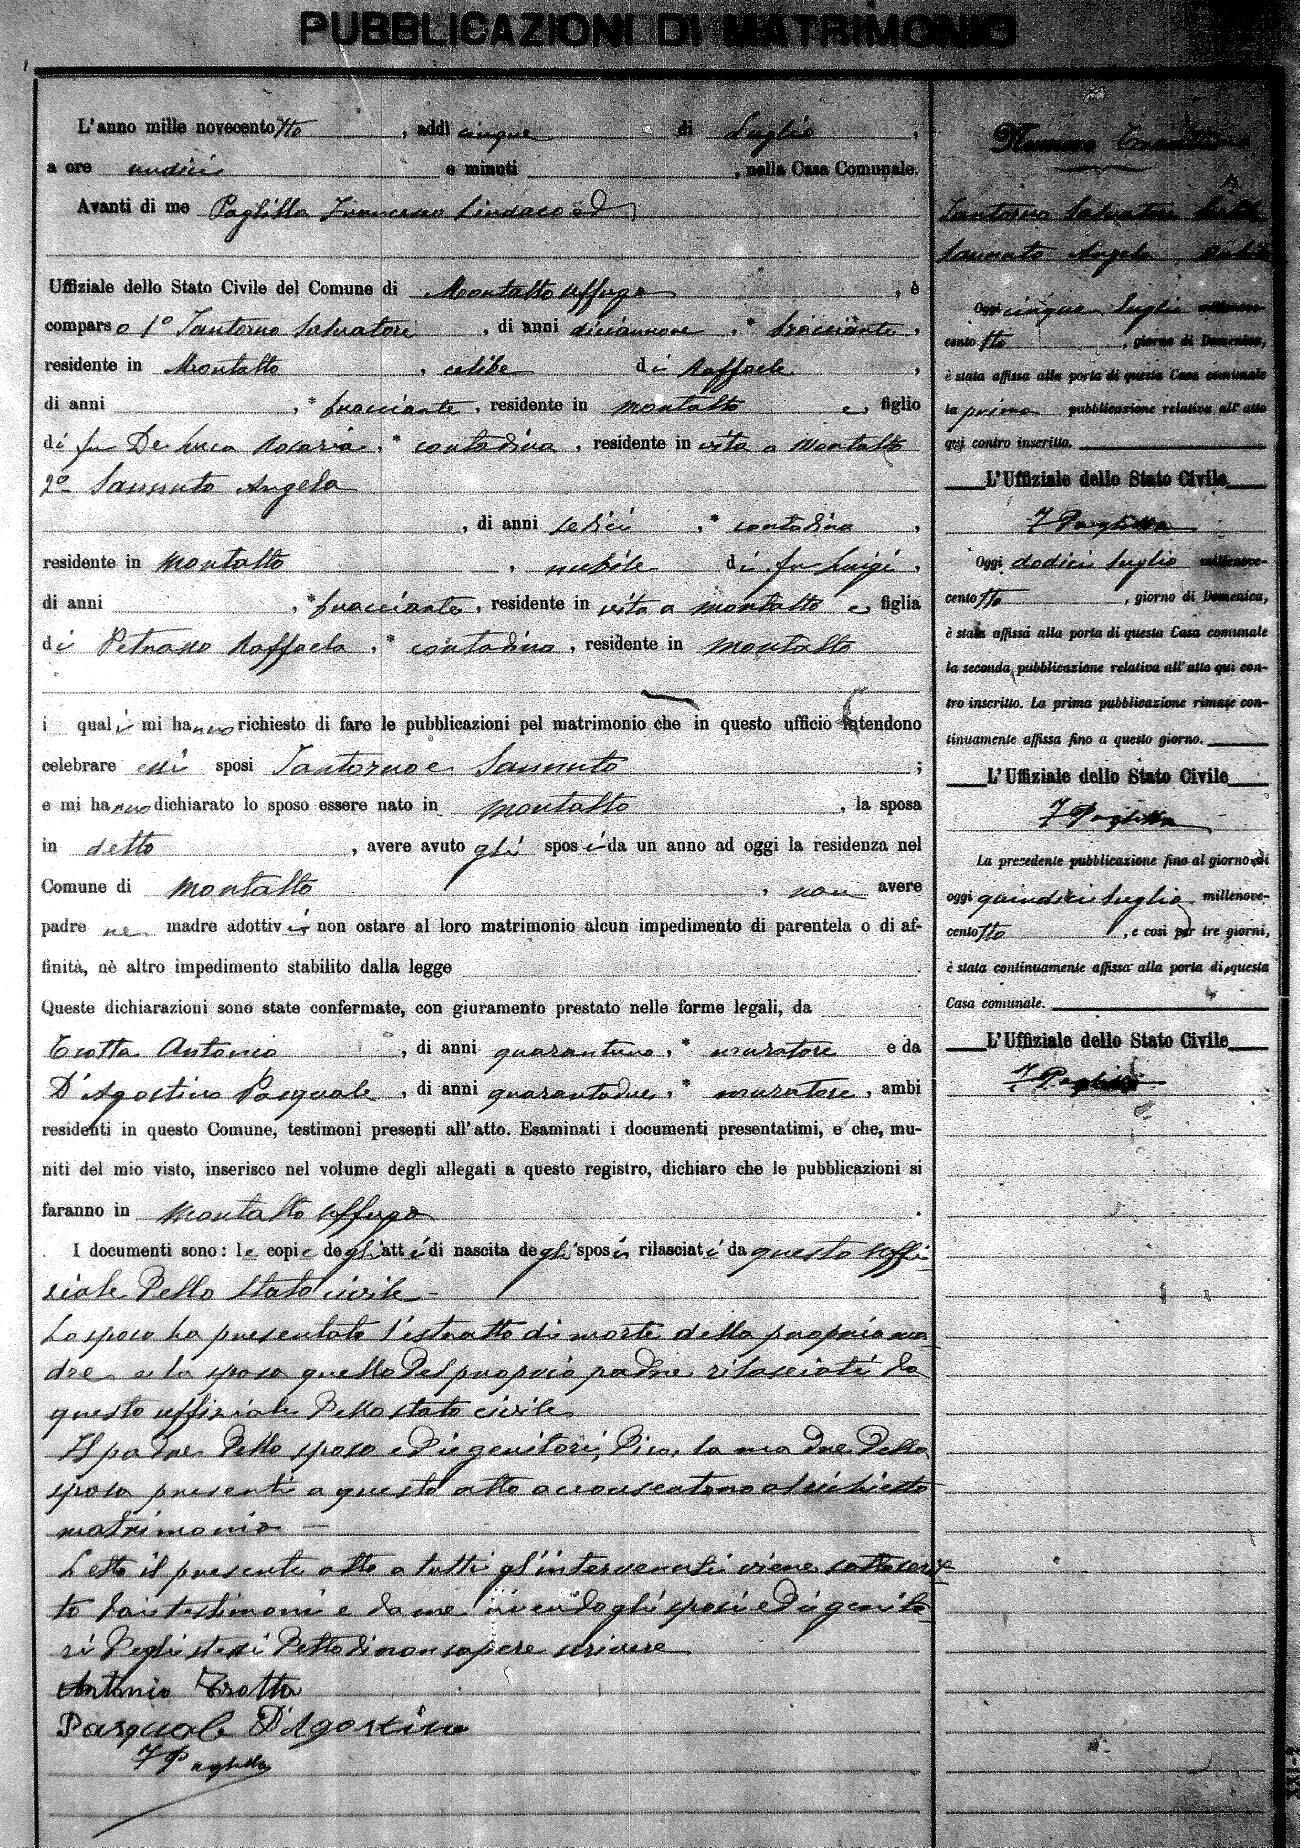 PUBBLICAZIONI DI MATRIMONIO
L'anno mille novecentotto, addì cinque di Luglio,
a ore undici e minuti, nella Casa Comunale.
Avanti di me Paglilla Francesco Sindaco ed
Uffiziale dello Stato Civile del Comune di Montalto Uffugo, è
comparso 1º Santorno Salvatore, di anni diciannove, * bracciante,
residente in Montalto, celibe di Raffaele,
di anni, * bracciante, residente in Montalto e figlio
di fu De Luca Rosaria, * contadina, residente in vita a Montalto
2º Sannuto Angela
, di anni sedici, * contadina,
residente in Montalto, nubile di fu Luigi,
di anni, * bracciante, residente in vita a Montalto e figlia
di Raffaela, * contadina, residente in Montalto
i quali mi hanno richiesto di fare le pubblicazioni pel matrimonio che in questo ufficio intendono
celebrare essi sposi Santorno e Sannuto;
e mi hanno dichiarato lo sposo essere nato in Montalto, la sposa
in detto, avere avuto gli sposi da un anno ad oggi la residenza nel
Comune di Montalto, non avere
padre ne madre adottivi e non ostare al loro matrimonio alcun impedimento di parentela o di af-
finità, nè altro impedimento stabilito dalla legge
Queste dichiarazioni sono state confermate, con giuramento prestato nelle forme legali, da
Trotta Antonio, di anni quarantuno, * muratore e da
D'Agostino Pasquale, di anni quarantadue, * muratore, ambi
residenti in questo Comune, testimoni presenti all'atto. Esaminati i documenti presentatimi, e che, mu-
niti del mio visto, inserisco nel volume degli allegati a questo registro, dichiaro che le pubblicazioni si
faranno in Montalto Uffugo.
I documenti sono: le copie degli atti di nascita degli sposi rilasciati da questo Uffi-
ziale dello stato civile -
Lo sposo ha presentato l'estratto di morte della propria ma
dre e la sposa quello del proprio padre rilasciati da
questo uffiziale dello stato civile
Il padre dello sposo e Di genitori, Dico, la madre della
sposa presenti a questo atto acconsentono al richiesto
matrimonio —
Letto il presente atto a tutti gl'intervenuti viene sottoscrit
to dai testimoni e da me avendo gli sposi e Di genito
ri degli stessi detto di non sapere scrivere
Antonio Trotta
Pasquale D'Agostino
F Paglilla
Numero
Santorno Salvatore celibe
Sannuto Angela nubile
Oggi cinque luglio millenove-
centotto, giorno di Domenica,
è stata affissa alla porta di questa Casa comunale
la prima pubblicazione relativa all'atto
qui contro inscritto.
L'Uffiziale dello Stato Civile
F Paglilla
Oggi dodici luglio millenove-
centotto, giorno di Domenica,
è stata affissa alla porta di questa Casa comunale
la seconda pubblicazione relativa all'atto qui con-
tro inscritto. La prima pubblicazione rimase con-
tinuamente affissa fino a questo giorno.
L'Uffiziale dello Stato Civile
F Paglilla
La precedente pubblicazione fino al giorno di
oggi quindici luglio millenove-
centotto, e così per tre giorni,
è stata continuamente affissa alla porta di questa
Casa comunale.
L'Uffiziale dello Stato Civile
F Paglilla